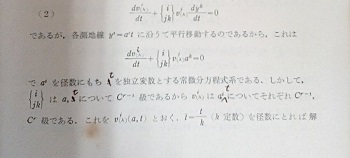 (2) dv^i_(h)/dt + {i jk} v^j_(h) dy^k/dt = 0
であるが，各測地線 y^i=a^i t に沿うて平行移動するのであるから，これは
dv^i_(h)/dt + {i jk} v^j_(h) a^k = 0
で，a^i を径数にもち t を独立変数とする常微分方程式系である．しかして，
{i jk} は a, t について C^{r-1} 級であるから v^i_(h) は a, t についてそれぞれ C^{r-1},
C^r 級である．これを v^i_(h)(a, t) とおく．t̄ = t/k (k 定数) を径数にとれば 解